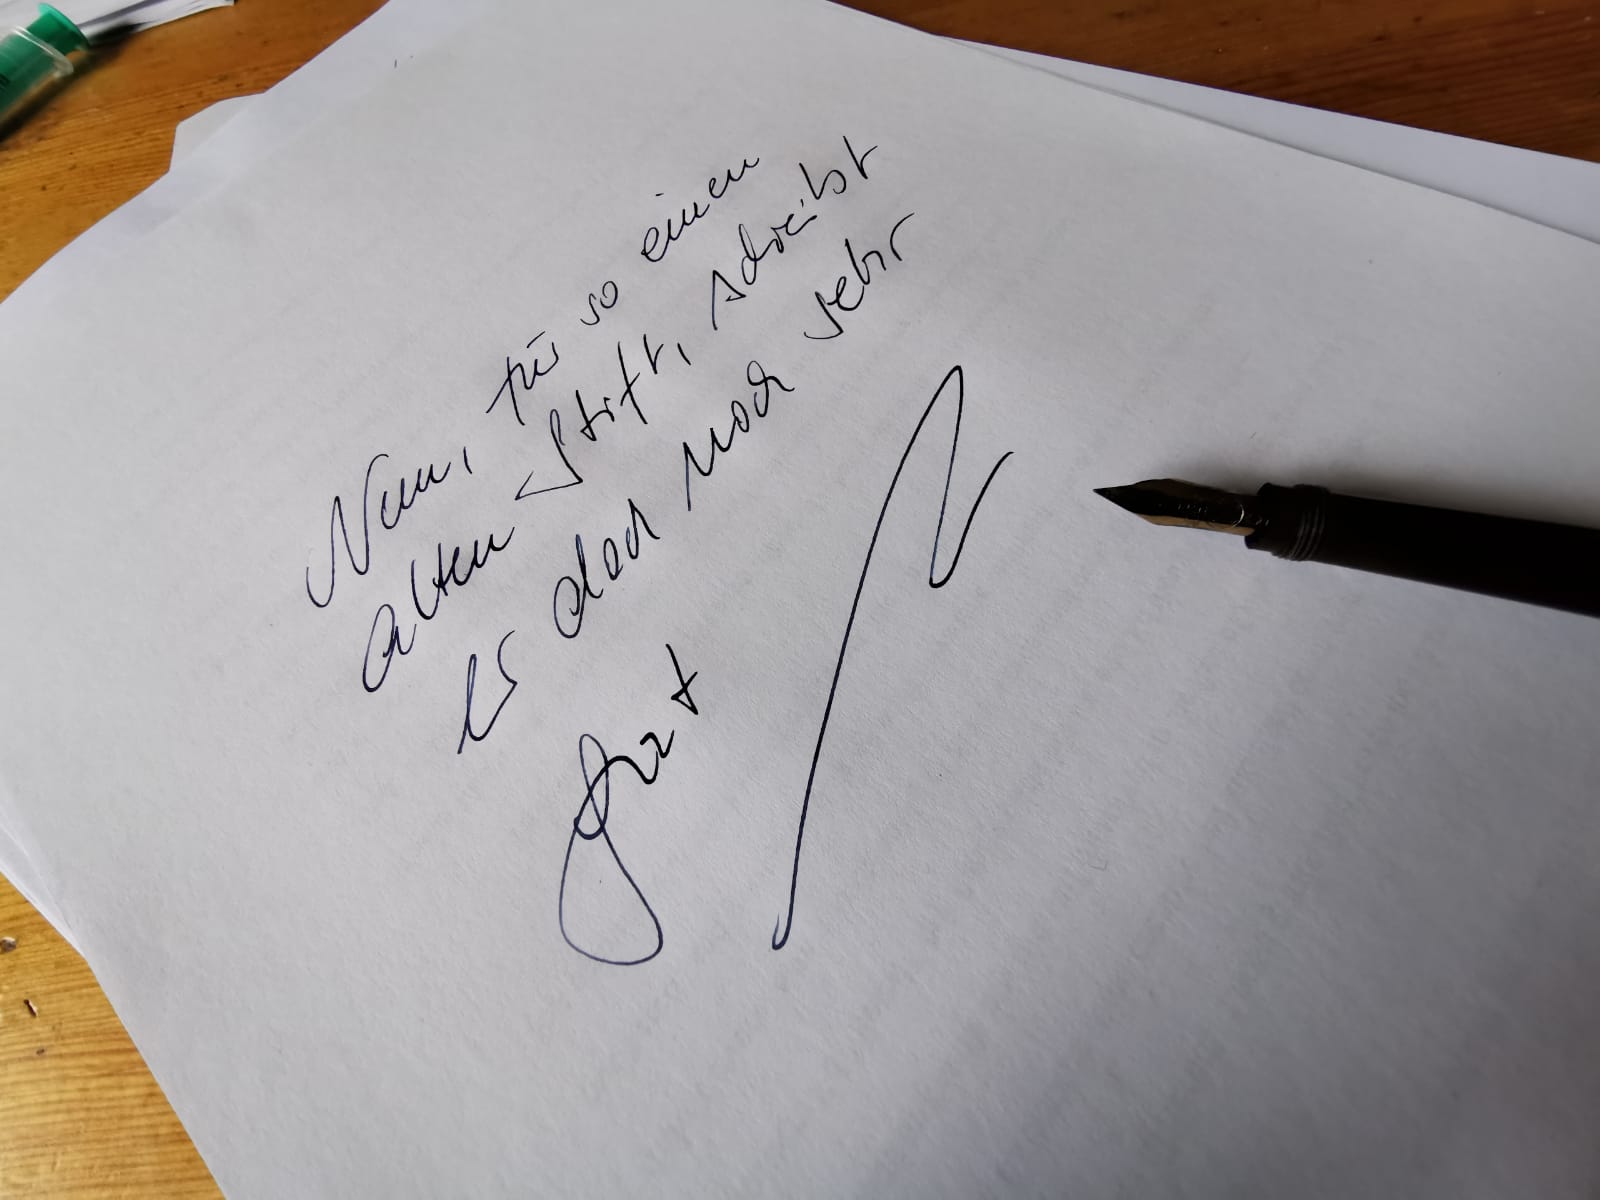 Nun, für so einen
alten Stift, schreibt
es doch noch sehr
gut